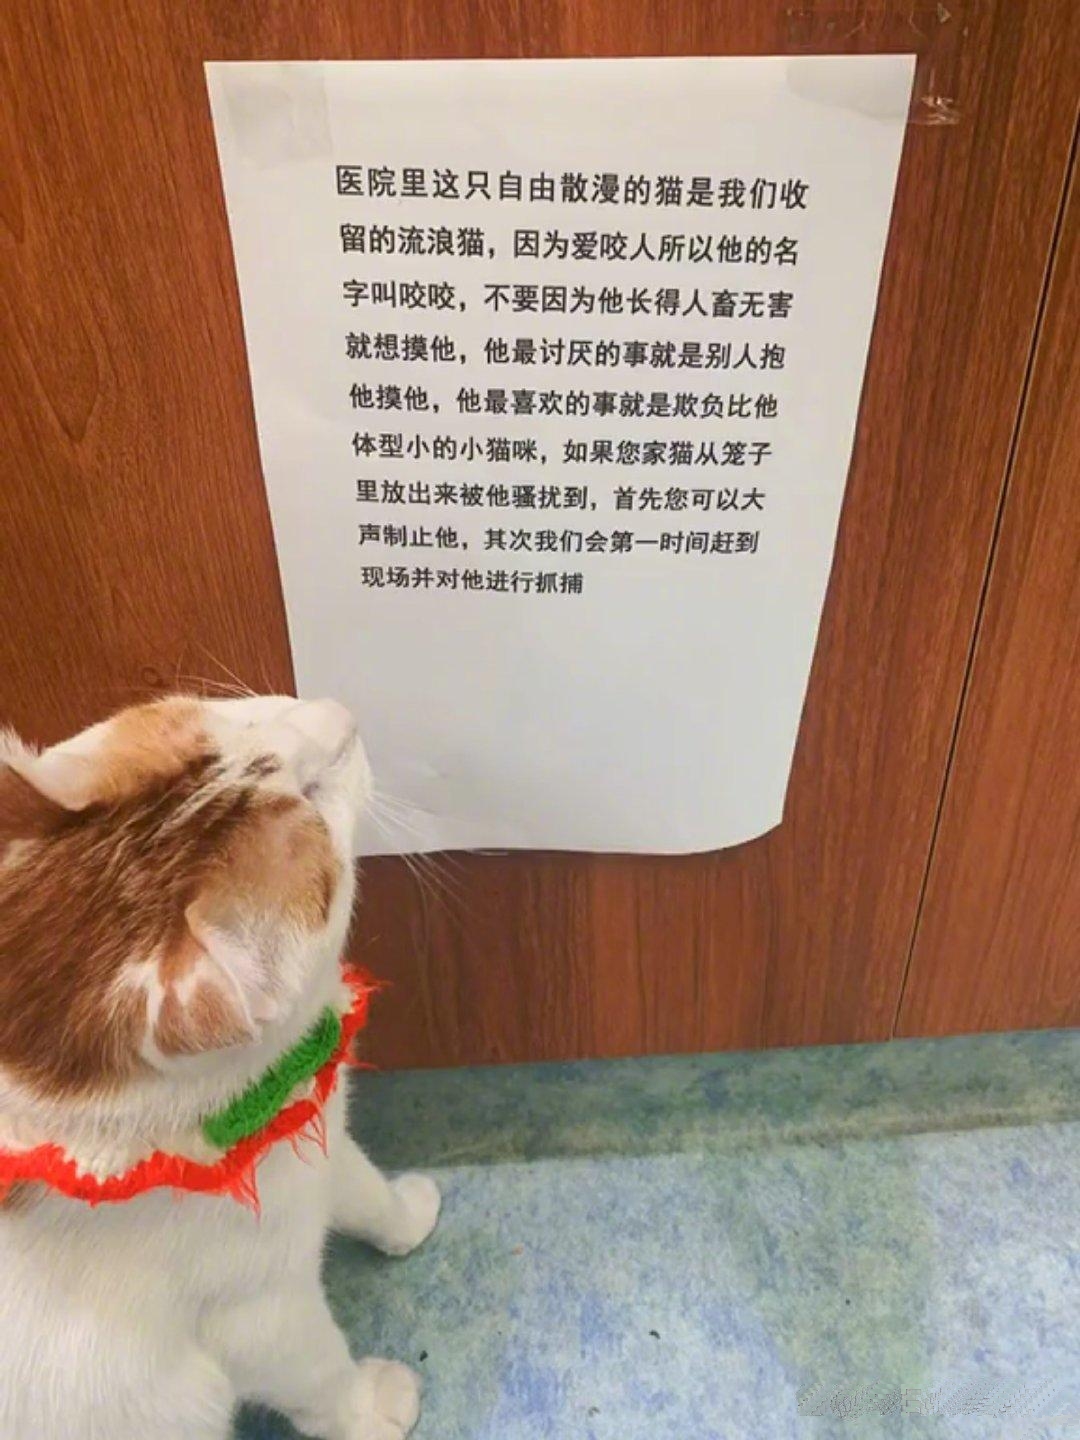 医院里这只自由散漫的猫是我们收
留的流浪猫，因为爱咬人所以他的名
字叫咬咬，不要因为他长得人畜无害
就想摸他，他最讨厌的事就是别人抱
他摸他，他最喜欢的事就是欺负比他
体型小的小猫咪，如果您家猫从笼子
里放出来被他骚扰到，首先您可以大
声制止他，其次我们会第一时间赶到
现场并对他进行抓捕